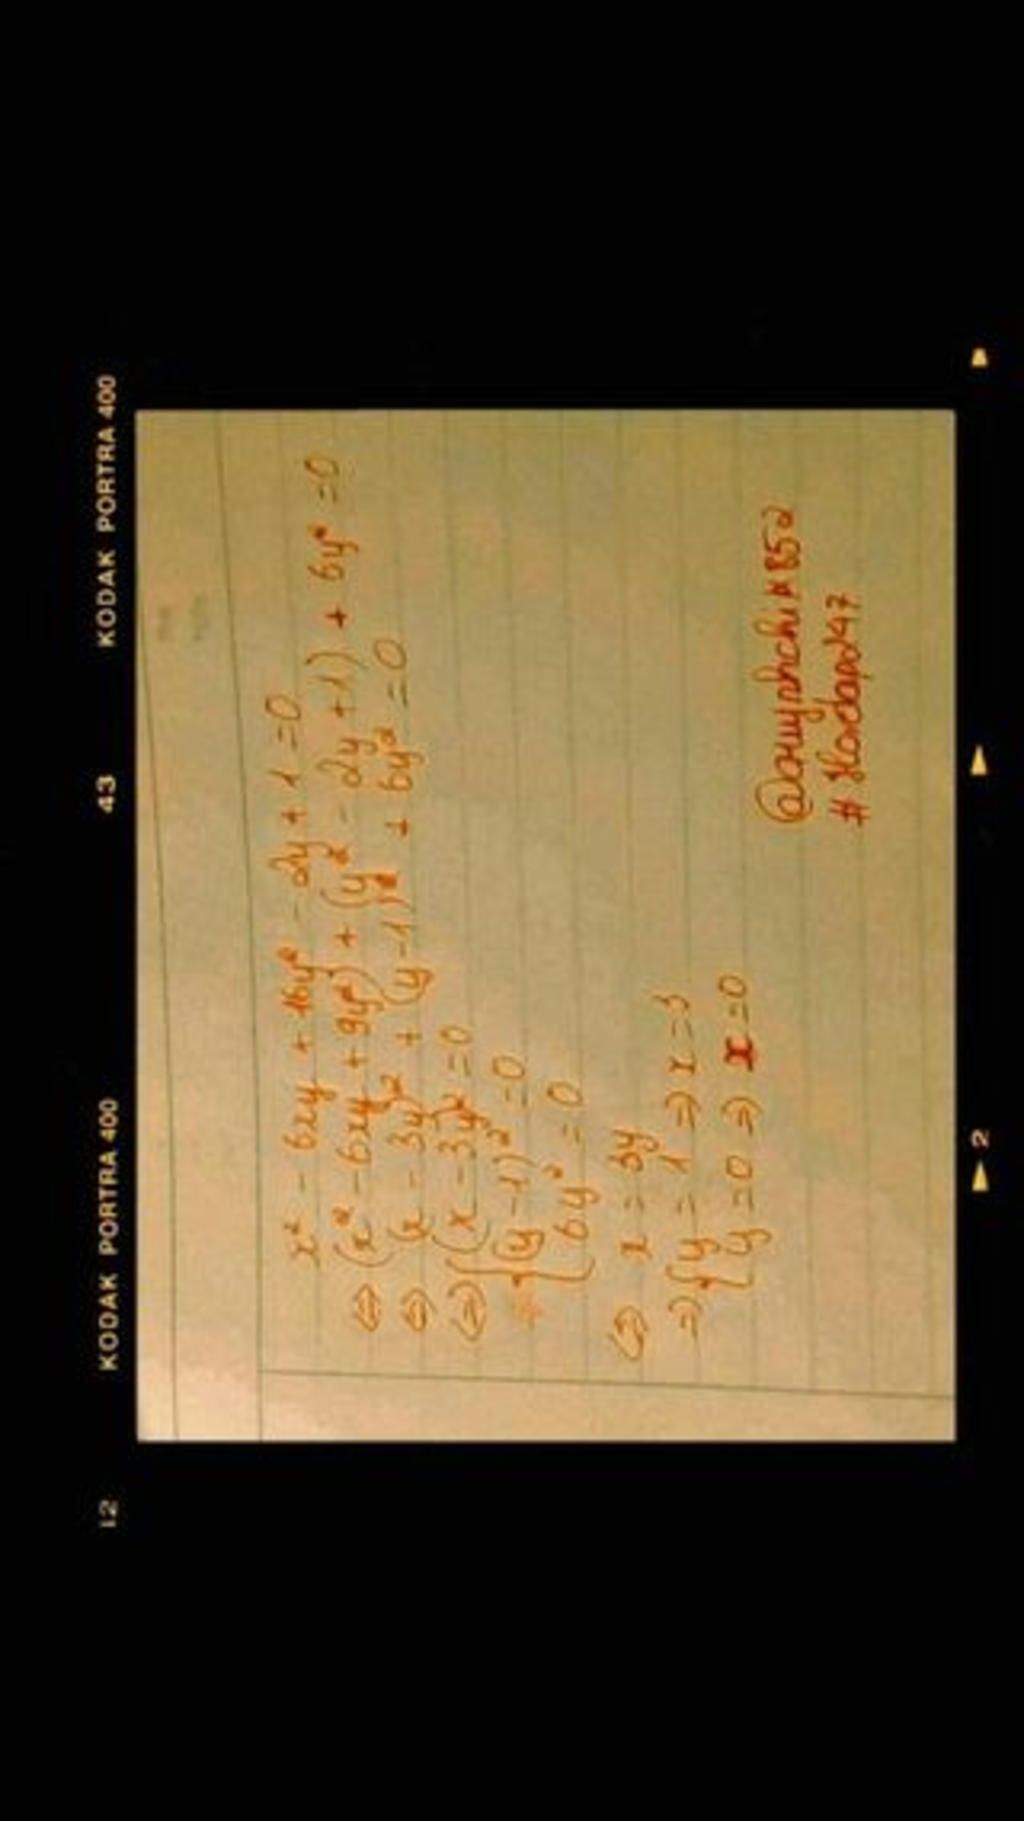 KODAK PORTRA 400
43
KODAK PORTRA 400
12
x² - 6xy + 16y² - 2y + 1 = 0
⇔ (x² - 6xy + 9y²) + (y² - 2y + 1) + 6y² = 0
⇔ (x - 3y)² + (y - 1)² + 6y² = 0
⇔ { (x - 3y)² = 0
(y - 1)² = 0
6y² = 0
⇔ x = 3y
⇒ { y = 1 ⇒ x = 3
y = 0 ⇒ x = 0
#Hoidap247
2